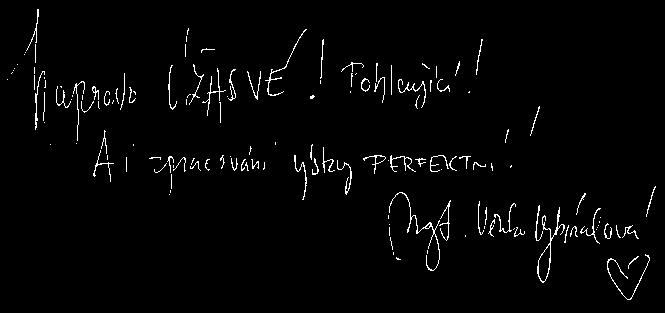 Naprosto ÚŽASNÉ! Pohlcující!
A i zpracování výšky PERFEKTNÍ!
Mgr. Věrka Vybíralová